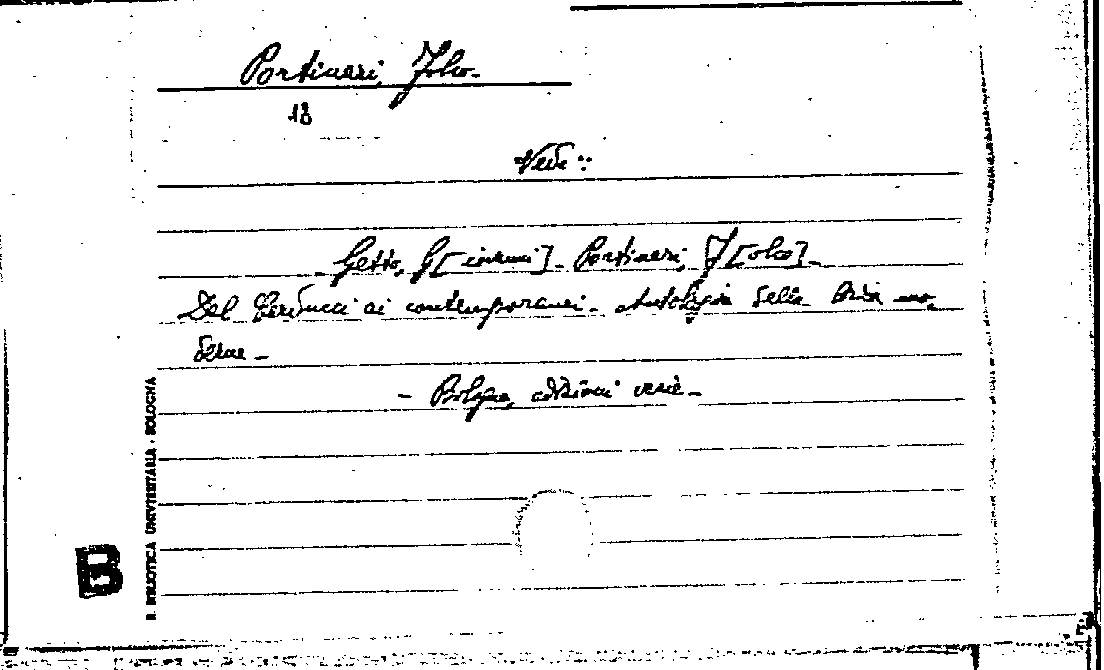 Portinari, Folco-
18
Vedi:
Getto, G[iovanni]. Portinari, F[olco]-
Dal Carducci ai contemporanei. Antologia della lirica mo
derna -
- Bologna, edizioni varie -
R. BIBLIOTECA UNIVERSITARIA - BOLOGNA
B